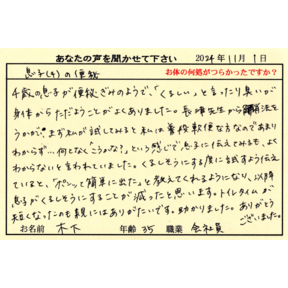 あなたの声を聞かせて下さい 2024年11月1日
お体の何処がつらかったですか?
息子(4)の便秘
4歳の息子が便秘ぎみのようで、「くるしい」と言ったり臭いが
身体からただようことがよくありました。長津先生から 法を
うかがい、まず私が試してみると私は普段軟便な方なのであまり
わからず…何となく「こうかな?」という感じで息子に伝えてみるも、よく
わからないと言われていました。くるしそうにする度に試すよう伝え
ていると、「ポンッて簡単に出た」と教えてくれるようになり、以降
息子がくるしそうにすることが減ったと思います。トイレタイムが
短くなったのも親にはありがたいです。助かりました。ありがとう
ございました。
お名前 木下 年齢 35 職業 会社員